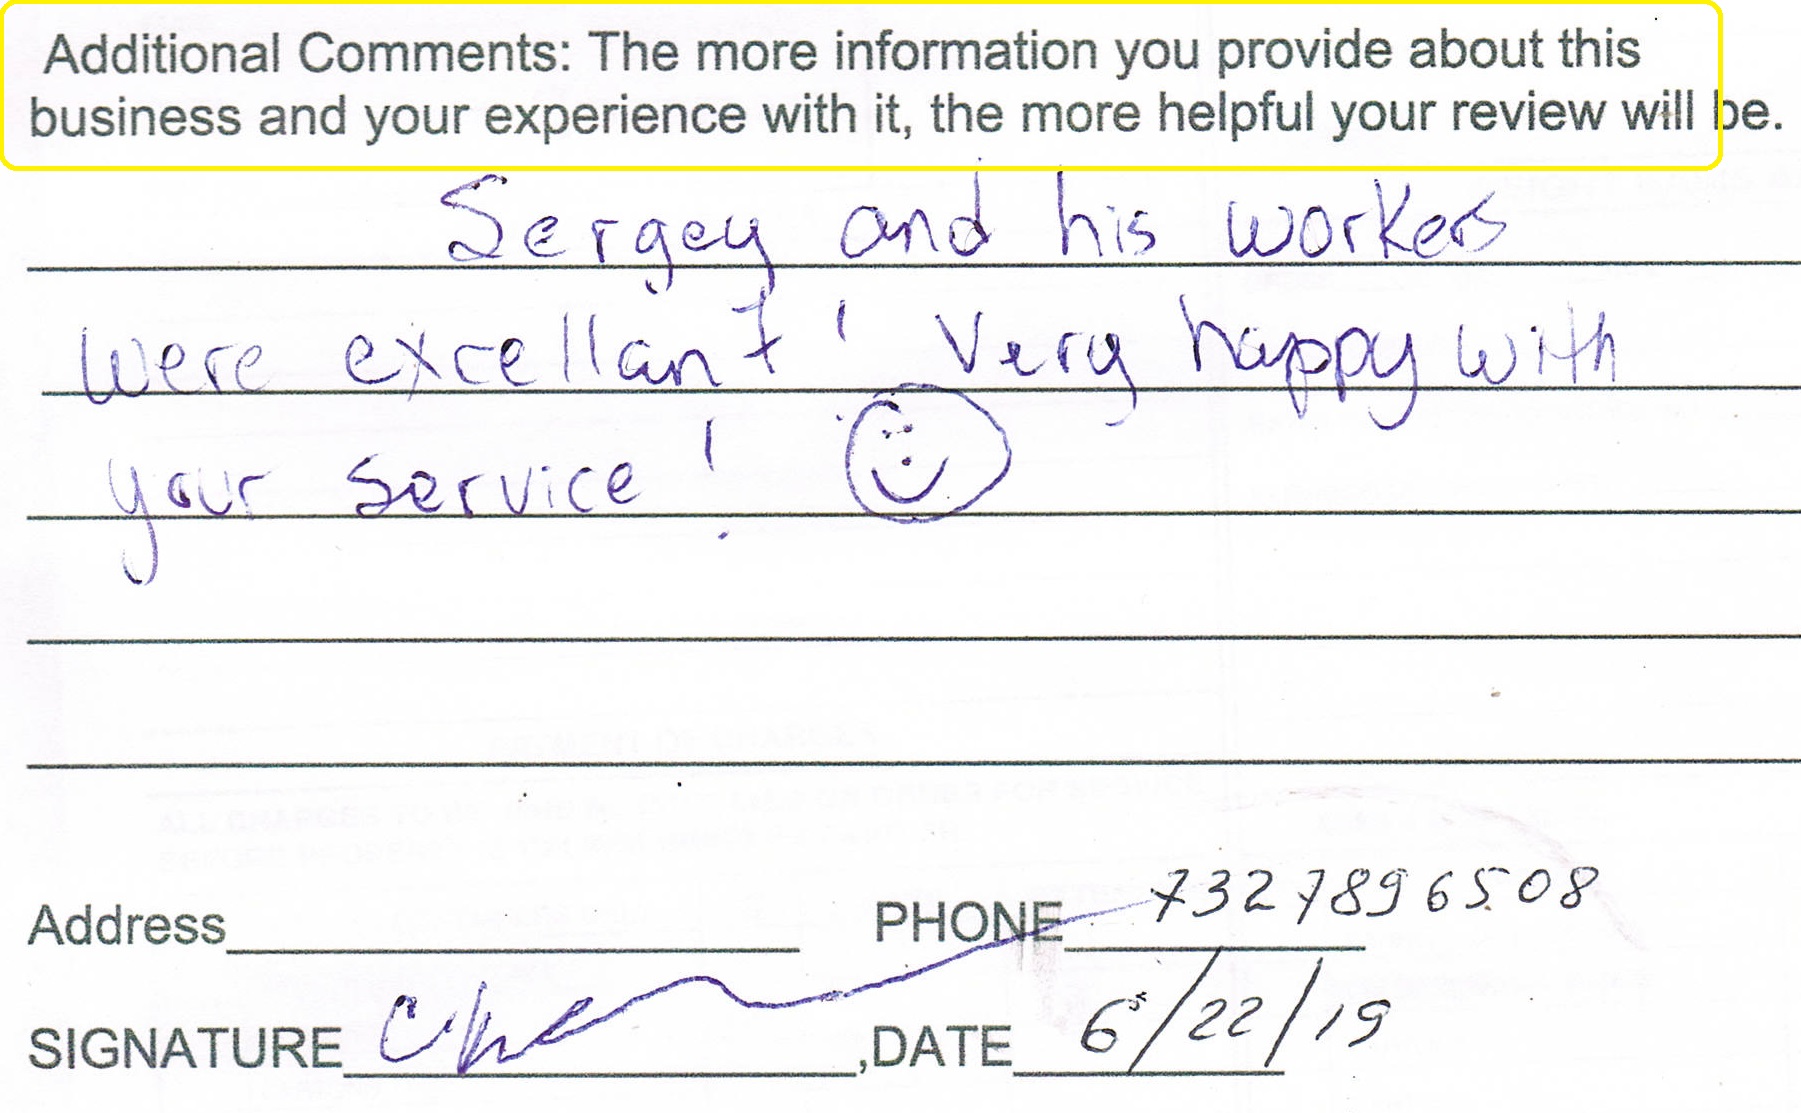 Additional Comments: The more information you provide about this
business and your experience with it, the more helpful your review will be.
Sergey and his workers
were excellant! Very happy with
your service!
Address PHONE 7327896508
SIGNATURE ,DATE 6/22/19